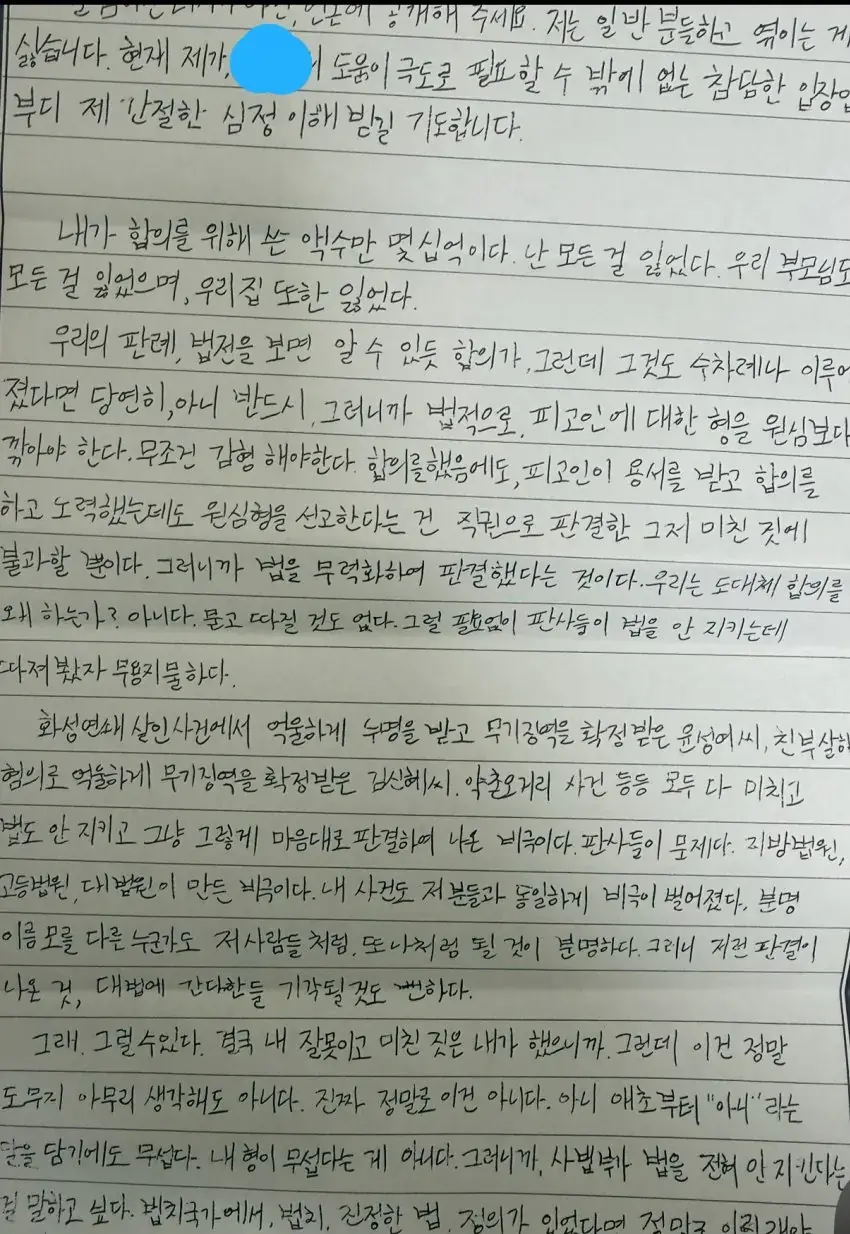 언론에 공개해 주세요. 저는 일반 분들하고 엮이는 게
싫습니다. 현재 제가, 도움이 극도로 필요할 수 밖에 없는 참담한 입장입
부디 제 간절한 심정 이해 받길 기도합니다.
내가 합의를 위해 쓴 액수만 몇십억이다. 난 모든 걸 잃었다. 우리 부모님도
모든 걸 잃었으며, 우리집 또한 잃었다.
우리의 판례, 법전을 보면 알 수 있듯 합의가, 그런데 그것도 수차례나 이루어
졌다면 당연히, 아니 반드시, 그러니까 법적으로, 피고인에 대한 형을 원심보다
깎아야 한다. 무조건 감형 해야한다. 합의를했음에도, 피고인이 용서를 받고 합의를
하고 노력했는데도 원심형을 선고한다는 건 직권으로 판결한 그저 미친 짓에
불과할 뿐이다. 그러니까 법을 무력화하여 판결했다는 것이다. 우리는 도대체 합의를
왜 하는가? 아니다. 묻고 따질 것도 없다. 그럴 필요없이 판사들이 법을 안 지키는데
따져봤자 무용지물하다.
화성연쇄살인사건에서 억울하게 누명을 받고 무기징역을 확정받은 윤성여씨, 친부살해
혐의로 억울하게 무기징역을 확정받은 김신혜씨. 약촌오거리 사건 등등 모두 다 미치고
법도 안 지키고 그냥 그렇게 마음대로 판결하여 나온 비극이다. 판사들이 문제다. 지방법원,
고등법원, 대법원이 만든 비극이다. 내 사건도 저 분들과 동일하게 비극이 벌어졌다. 분명
이름 모를 다른 누군가도 저 사람들 처럼, 또 나처럼 될 것이 분명하다. 그러니 저런 판결이
나온 것, 대법에 간다한들 기각될것도 뻔하다.
그래. 그럴수있다. 결국 내 잘못이고 미친 짓은 내가 했으니까. 그런데 이건 정말
도무지 아무리 생각해도 아니다. 진짜 정말로 이건 아니다. 아니 애초부터 "아니"라는
말을 담기에도 무섭다. 내 형이 무섭다는 게 아니다. 그러니까, 사법부가 법을 전혀 안 지킨다는
걸 말하고 싶다. 법치국가에서, 법치, 진정한 법, 정의가 있었다면 정말로